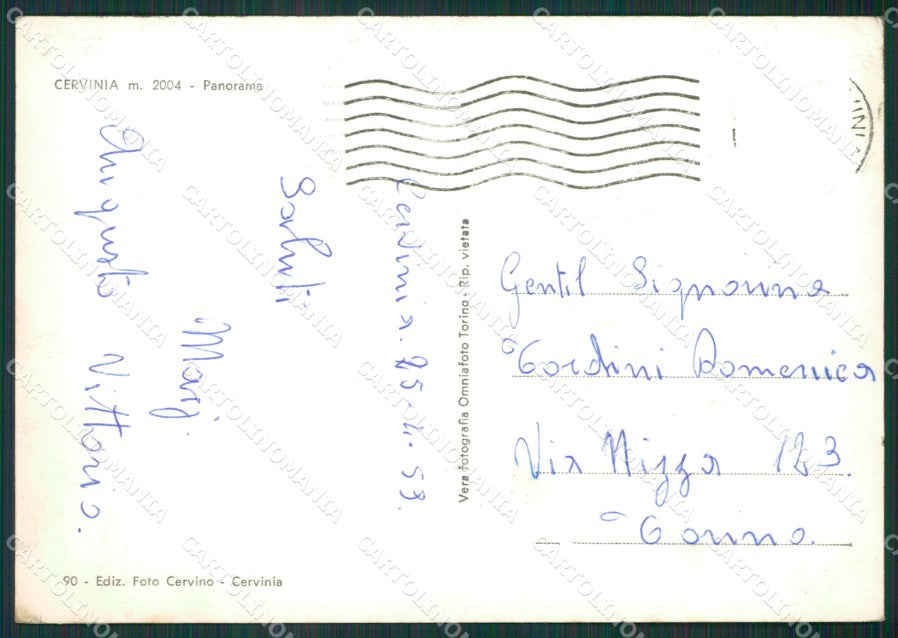 CERVINIA m. 2004 - Panorama
Cervinia. 25.4.53.
Saluti
Marj.
Augusto Vittorio.
90 - Ediz. Foto Cervino - Cervinia
Vera fotografia Omniafoto Torino - Rip. vietata
Gentil Signorina
Tordini Domenica
Via Nizza 123.
Torino.
CARTOLINOMANIA